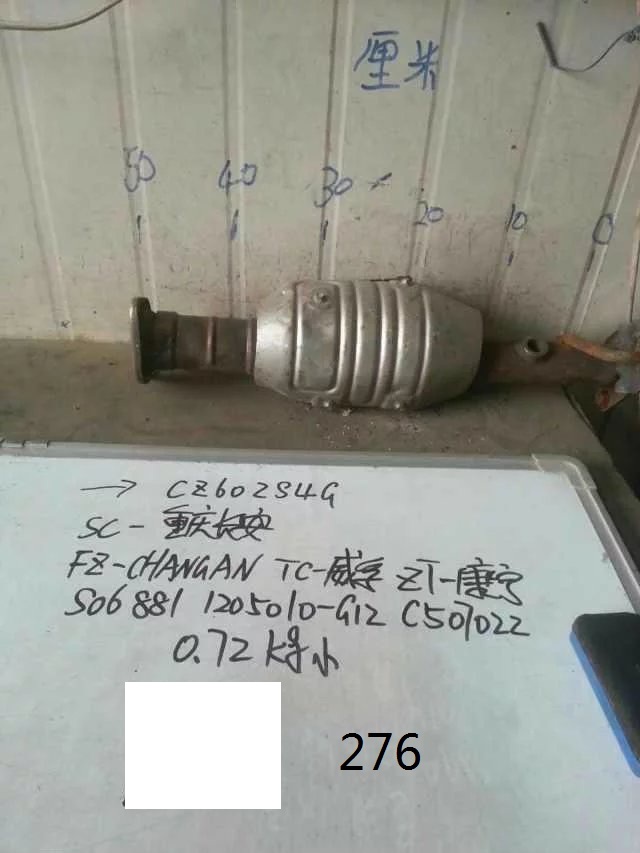 厘米
50 40 30 20 10 0
→ CZ602S4G
SC-重庆长安
FZ-CHANGAN TC-威孚 ZT-康宁
S06881 1205010-G12 C507022
0.72 kg 小
276